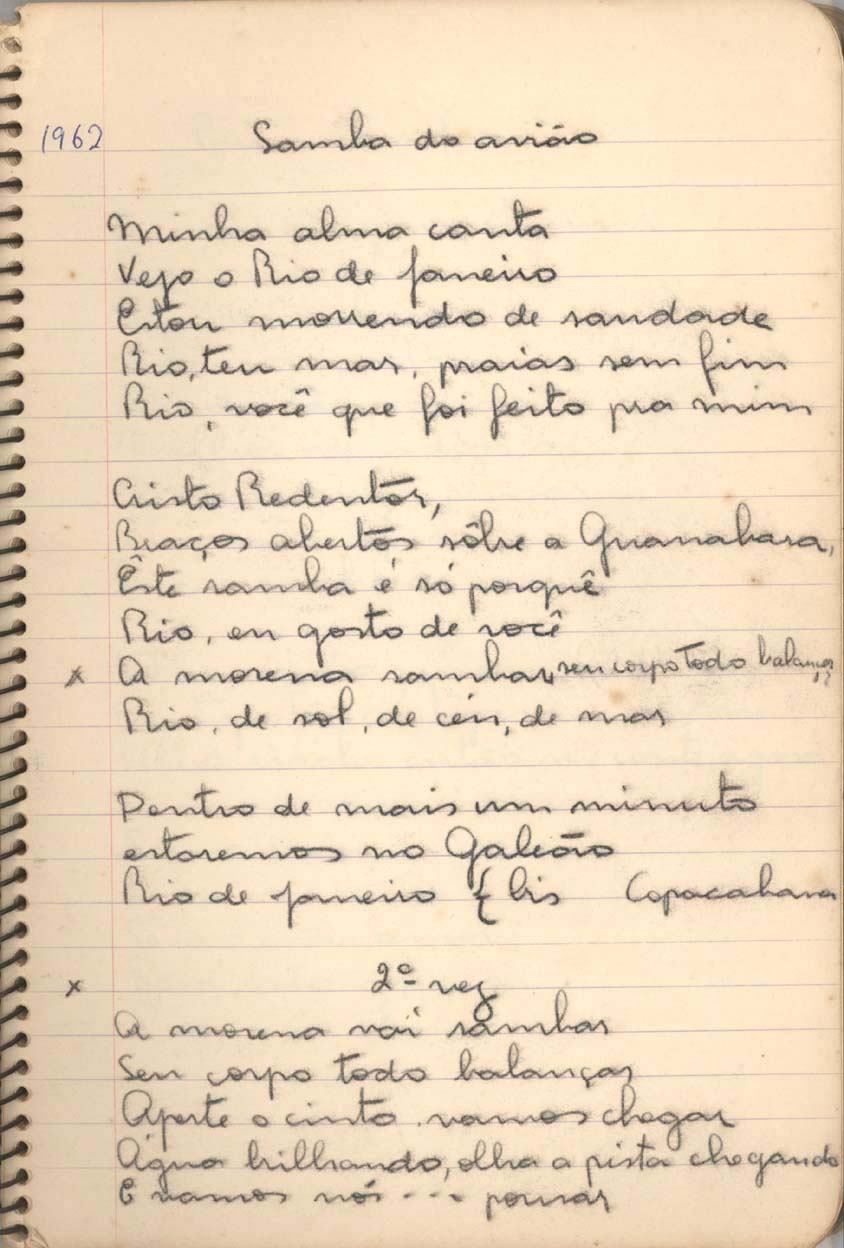 1962
Samba do avião
Minha alma canta
Vejo o Rio de Janeiro
Estou morrendo de saudade
Rio, teu mar, praias sem fim
Rio, você que foi feito pra mim
Cristo Redentor,
Braços abertos sôbre a Guanabara,
Êste samba é só porquê
Rio, eu gosto de você
x A morena sambar, seu corpo todo balançar
Rio, de sol, de céu, de mar
Dentro de mais um minuto
estaremos no Galeão
Rio de Janeiro { bis Copacabana
x 2ª vez
A morena vai sambar
Seu corpo todo balançar
Aperte o cinto vamos chegar
Água brilhando, olha a pista chegando
E vamos nós ... pousar